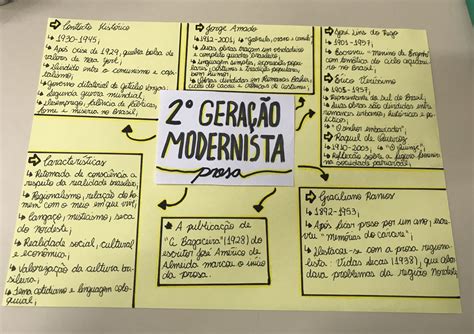 Contexto Histórico
↳ 1930-1945;
↳ Após crise de 1929, quebra bolsa de
valores de Nova York;
↳ Divididos entre o comunismo e capi-
talismo;
↳ Governo ditatorial de Getúlio Vargas;
↳ Segunda guerra mundial;
↳ Desemprego, falência de fábricas,
fome e miséria no Brasil;
Jorge Amado
↳ 1912-2001; "Gabriela, cravo e canela"
↳ Suas obras trazem um verdadeiro
e completo quadro brasileiro;
↳ Linguagem simples, expressões popu-
lares, cultura e tradição popular,
bom humor;
↳ Obras divididas em Romances Baianos,
ciclo do cacau e crônicas de costumes;
José Lins do Rego
↳ 1901-1957;
↳ Escreveu "Menino de Engenho"
com temática do ciclo açucarei-
ro no Brasil;
Érico Veríssimo
↳ 1905-1957;
↳ Representante do sul do Brasil;
↳ Suas obras são divididas entre
romances urbanos, históricos e
políticos;
↳ "O senhor embaixador";
Raquel de Queiroz
↳ 1910-2003; "O quinze";
↳ Reflexão sobre a figura feminina na
sociedade patriarcal;
2ª GERAÇÃO
MODERNISTA
prosa
Características
↳ Retomada de consciência a
respeito da realidade brasileira;
↳ Regionalismo, relação do ho-
mem com o meio em que vive;
↳ Cangaço, misticismo, seca
do Nordeste;
↳ Realidade social, cultural
e econômica;
↳ Valorização da cultura bra-
sileira;
↳ Tema cotidiano e linguagem colo-
quial;
A publicação de
"A Bagaceira" (1928) do
escritor José Américo de
Almeida marcou o início
da prosa.
Graciliano Ramos
↳ 1892-1953;
↳ Após ficar preso por um ano, escre-
veu "Memórias do cárcere";
↳ Destacou-se com a prosa regiona-
lista: Vidas Secas (1938), que abor-
dava problemas da região Nordeste;